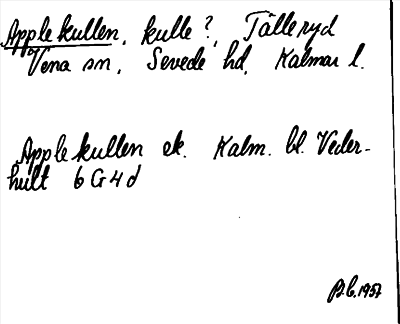 Applekullen, kulle?, Tälleryd
Vena sn, Sevede hd, Kalmar l.
Applekullen ek. Kalm. bl. Veder-
hult 6 G 4 d
B.C. 1957